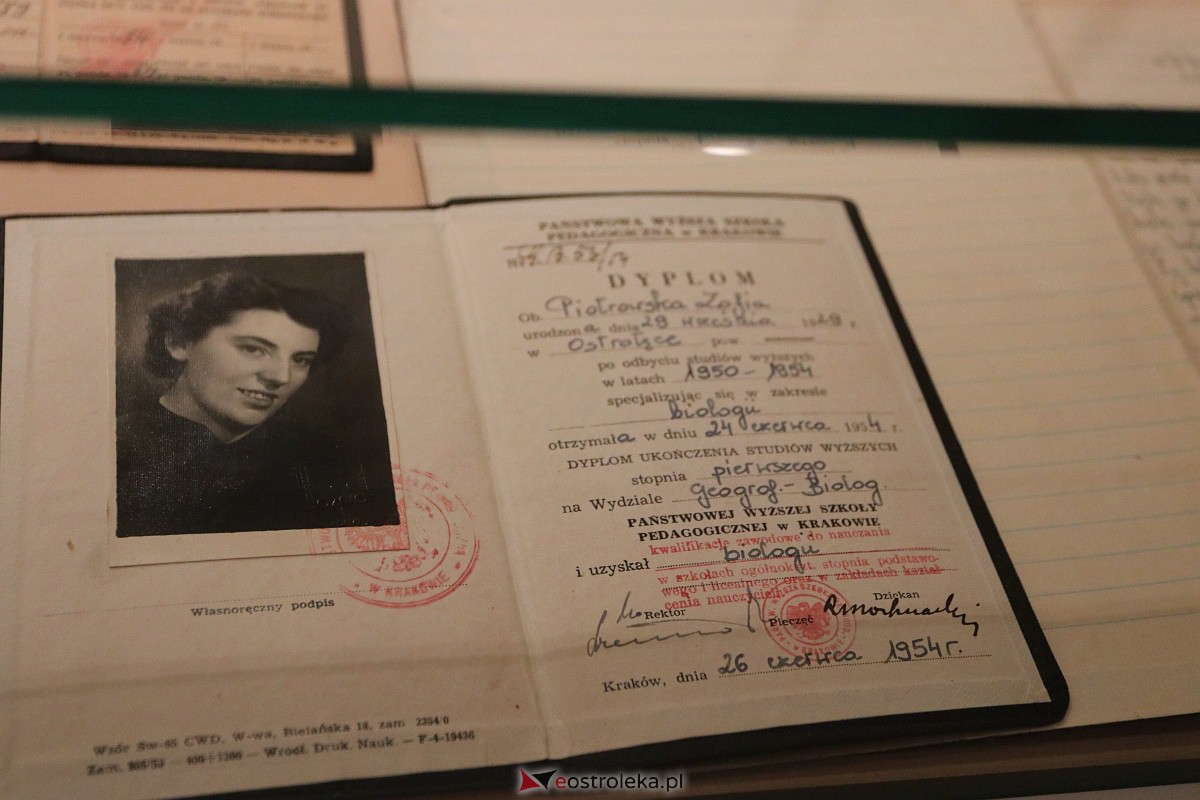 Własnoręczny podpis
Wzór Sw-65 CWD, W-wa, Bielańska 18, zam 2394/0
Zam. — Wrocł. Druk. Nauk. — F-4-19436
W KRAKOWIE
PAŃSTWOWA WYŻSZA SZKOŁA
PEDAGOGICZNA w KRAKOWIE
DYPLOM
Ob. Piotrowska Zofia
urodzona dnia 29 września 1929 r.
w Ostrołęce pow.
po odbyciu studiów wyższych
w latach 1950 - 1954
specjalizując się w zakresie
biologii
otrzymała w dniu 24 czerwca 1954 r.
DYPLOM UKOŃCZENIA STUDIÓW WYŻSZYCH
stopnia pierwszego
na Wydziale Geograf.- Biolog.
PAŃSTWOWEJ WYŻSZEJ SZKOŁY
PEDAGOGICZNEJ w KRAKOWIE
kwalifikacje zawodowe do nauczania
i uzyskał biologii
w szkołach ogólnokszt. stopnia podstawo-
wego i licealnego oraz w zakładach kształ-
cenia nauczycieli
Rektor Pieczęć Dziekan
Kraków, dnia 26 czerwca 1954 r.
eostroleka.pl